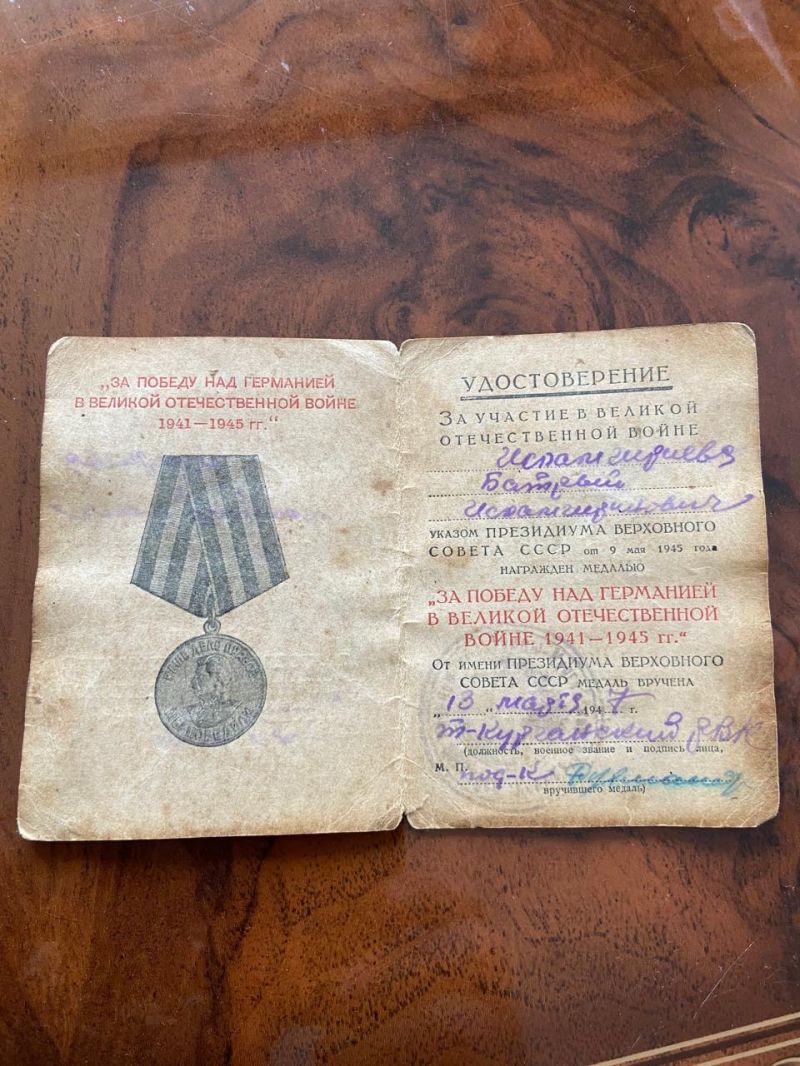 „ЗА ПОБЕДУ НАД ГЕРМАНИЕЙ
В ВЕЛИКОЙ ОТЕЧЕСТВЕННОЙ ВОЙНЕ
1941—1945 гг.“
УДОСТОВЕРЕНИЕ
ЗА УЧАСТИЕ В ВЕЛИКОЙ
ОТЕЧЕСТВЕННОЙ ВОЙНЕ
УКАЗОМ ПРЕЗИДИУМА ВЕРХОВНОГО
СОВЕТА СССР от 9 мая 1945 года
НАГРАЖДЕН МЕДАЛЬЮ
„ЗА ПОБЕДУ НАД ГЕРМАНИЕЙ
В ВЕЛИКОЙ ОТЕЧЕСТВЕННОЙ
ВОЙНЕ 1941—1945 гг.“
ОТ ИМЕНИ ПРЕЗИДИУМА ВЕРХОВНОГО
СОВЕТА СССР МЕДАЛЬ ВРУЧЕНА
„13“ марта 1947 г.
Т-Курганский РВК
(должность, военное звание и подпись лица,
М. П. под-к
вручившего медаль)